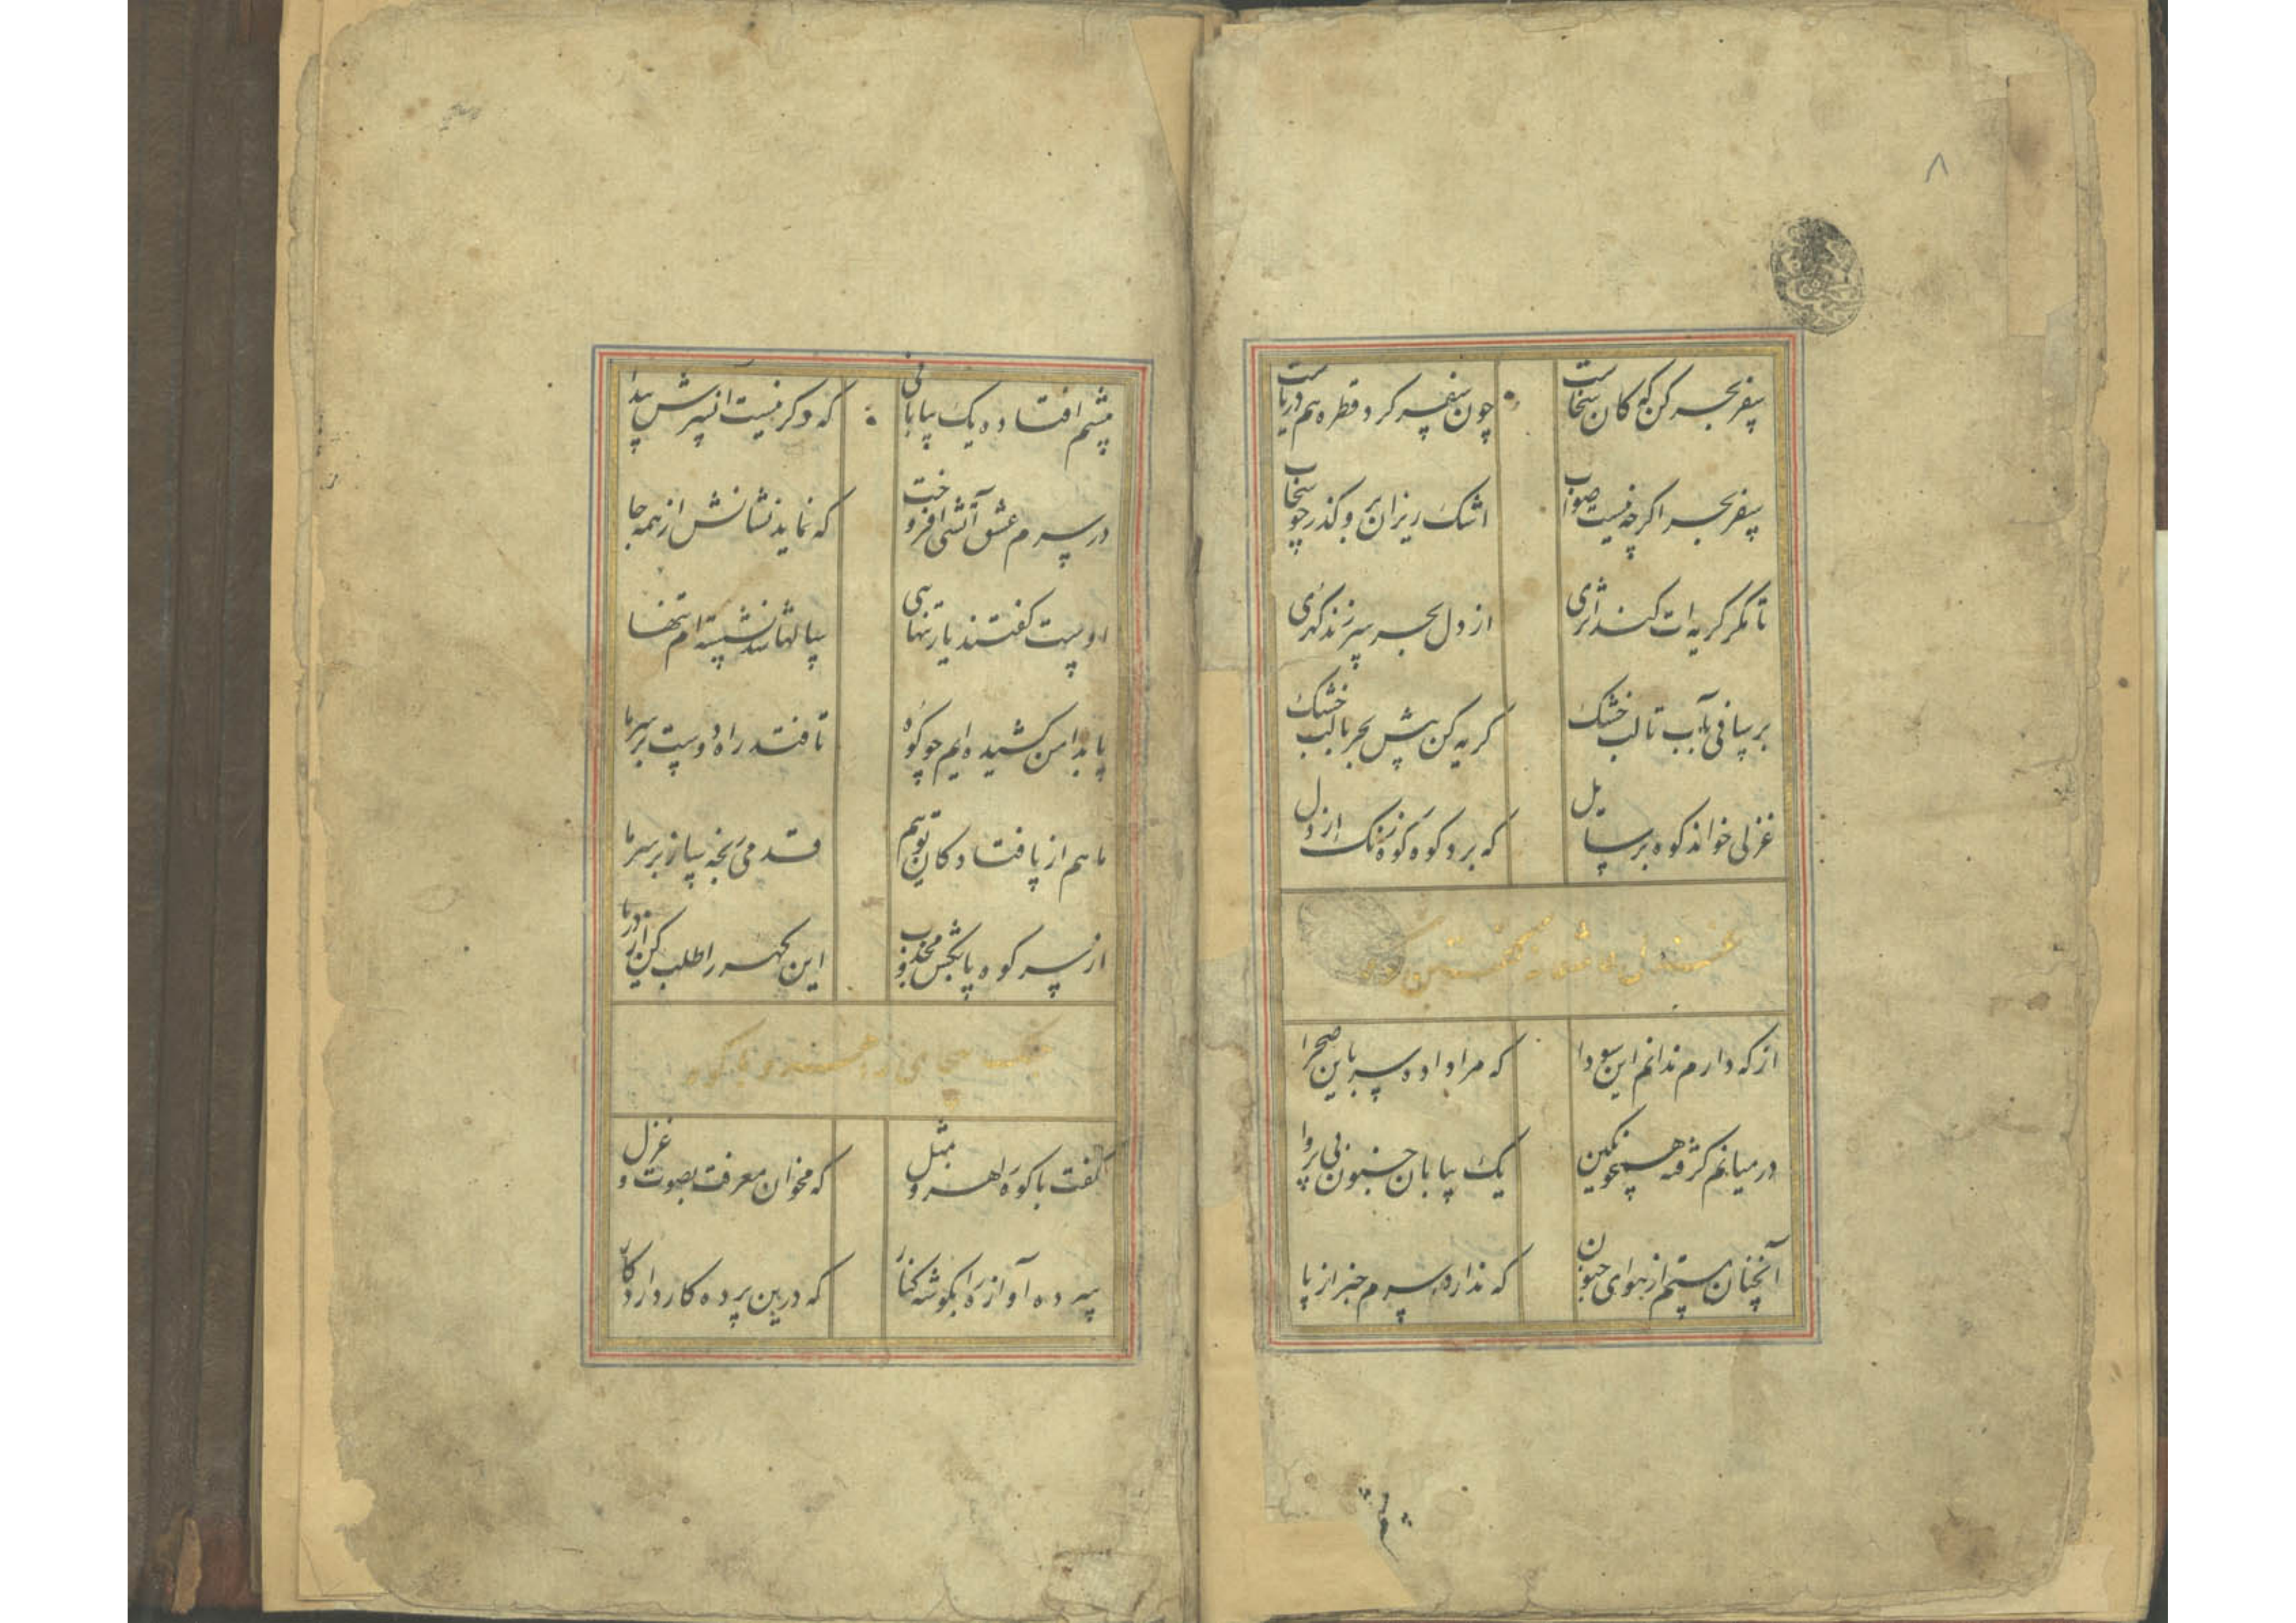 ۸
سفر بحر کن که کان سخاست
چون سفر کرد قطره هم دریاست
سفر بحر اگر چه نیست صواب
اشک ریزان برو گذر چو سحاب
تا مگر گریه ات کند اثری
از دل بحر سر زند گهری
بر سیاقی بآب تا لب خشک
گریه کن پیش بحر با لب خشک
غزلی خواند کوه بر سایل
که برد کوه کوه زنگ از دل
از که دارم ندانم این سودا
که مرا داده سر باین صحرا
در میانم گرفته همچو نگین
یک بیابان جنون بی پروا
آنچنان مستم از هوای جنون
که ندارد سرم خبر از پا
چشم افتاده یک بیابانی
که دگر نیست انسرش پیدا
در سرم عشق آتشی افروخت
که نماید نشانش از همه جا
دوست گفتند یار تنهایی
سالها شد نشسته ام تنها
پا بدامن کشیده ایم چو کوه
تا فتد راه دوست بر سر ما
ما هم از پا فتادگان توییم
قدمی رنجه ساز بر سر ما
از سر کوه پا بکش مجذوب
این گهر را طلب کن از دریا
گفت با کوه راهرو بمثل
که مخوان معرفت بصوت و غزل
پرده آواز را بگوشه گذار
که درین پرده کار دارد کار